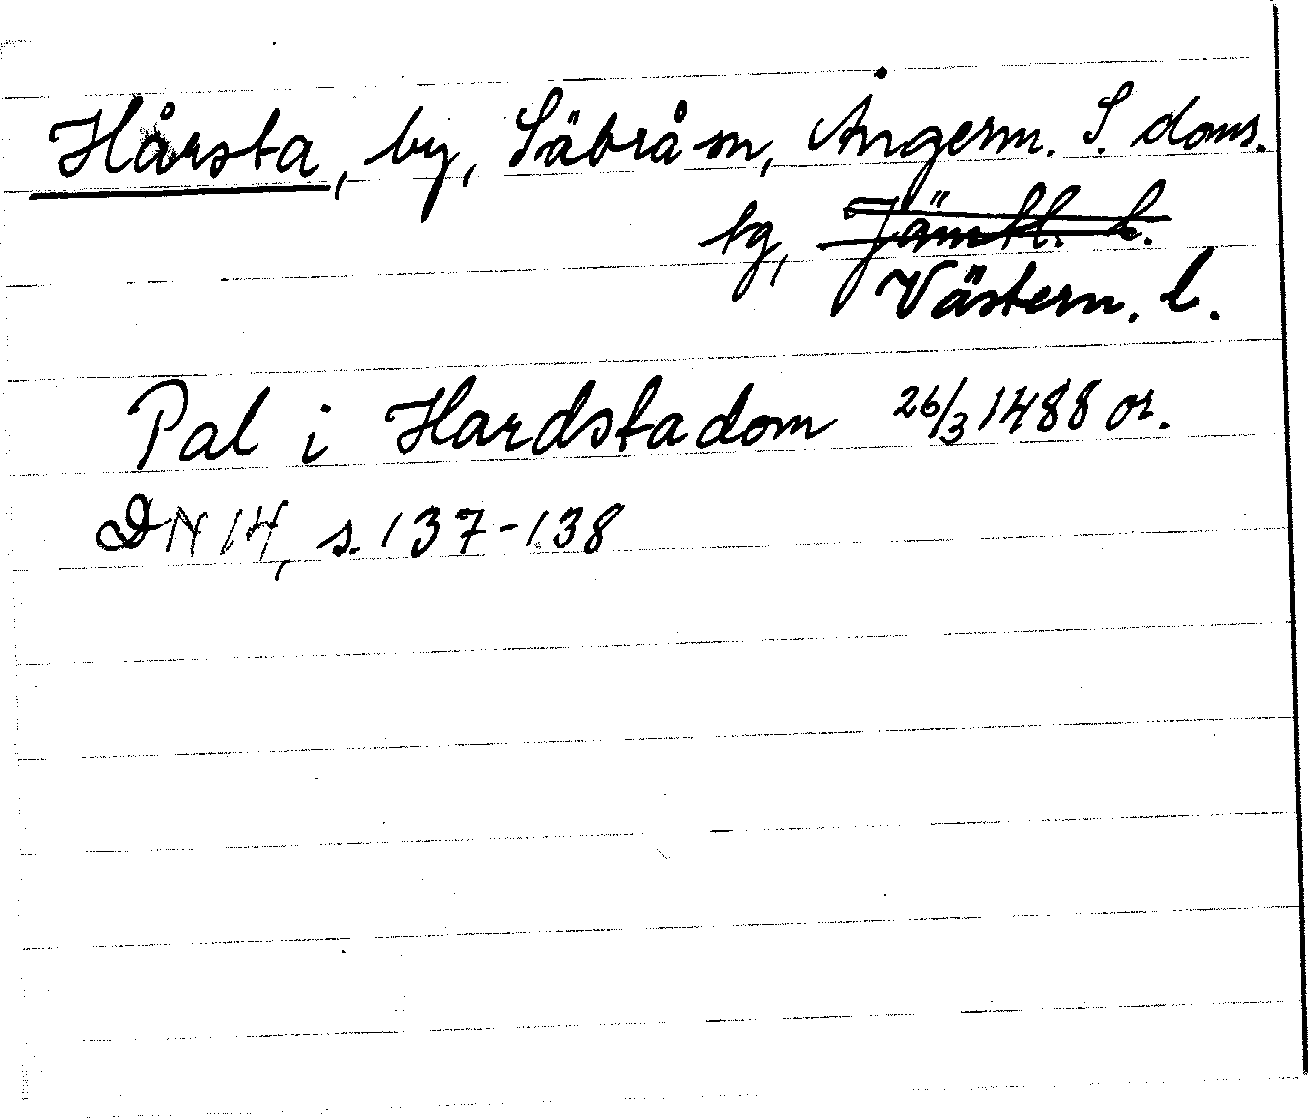 Hårsta, by, Säbrå sn, Ångerm. S. doms.
bg, Jämtl. l.
Västern. l.
Pal i Hardstadom 26/3 1488 or.
DN 14, s. 137-138